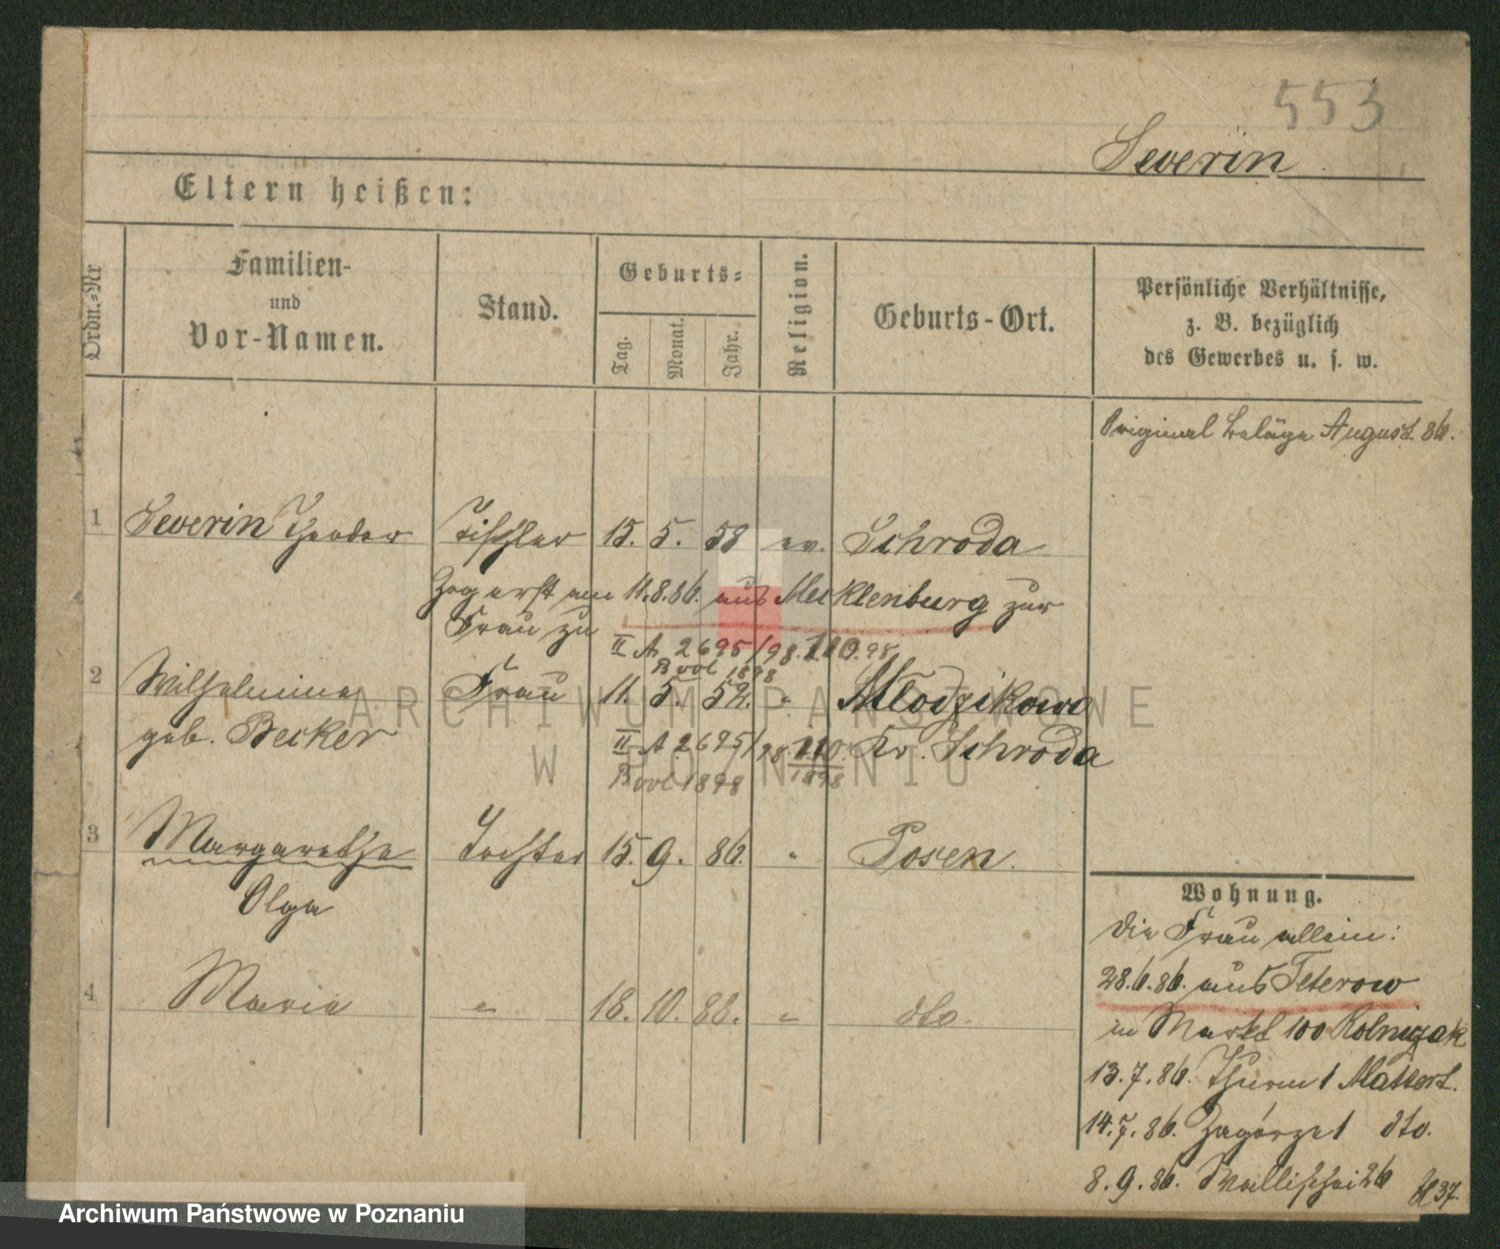 553
Severin
Eltern heißen:
Ordn.=Nr
Familien-
und
Vor-Namen.
Stand.
Geburts=
Tag.
Monat.
Jahr.
Religion.
Geburts-Ort.
Persönliche Verhältnisse,
z. B. bezüglich
des Gewerbes u. s. w.
Original Beläge August 86.
1 Severin Theodor Tischler 15. 5. 58 ev. Schroda
Zog erst am 11.8.86. aus Mecklenburg zur
Frau zu
II A 2695/98. 110.98
B vol 1898
2 Wilhelmine Frau 11. 5. 52. " Mlodzikowo
geb. Becker II A 2695/98. 110. Kr. Schroda
B vol 1898 1898
3 Margarethe Tochter 15. 9. 86. " Posen.
Olga
4 Maria " 18. 10. 88. " dto.
Wohnung.
Die Frau allein:
28.6.86. aus Teterow
in Markt 100 Rolniczak
13.7.86. Thurm 1 Mattert.
14.7.86. Zagórze 1 dto.
8.9.86. Wallischei 26
37
ARCHIWUM PAŃSTWOWE
W POZNANIU
Archiwum Państwowe w Poznaniu